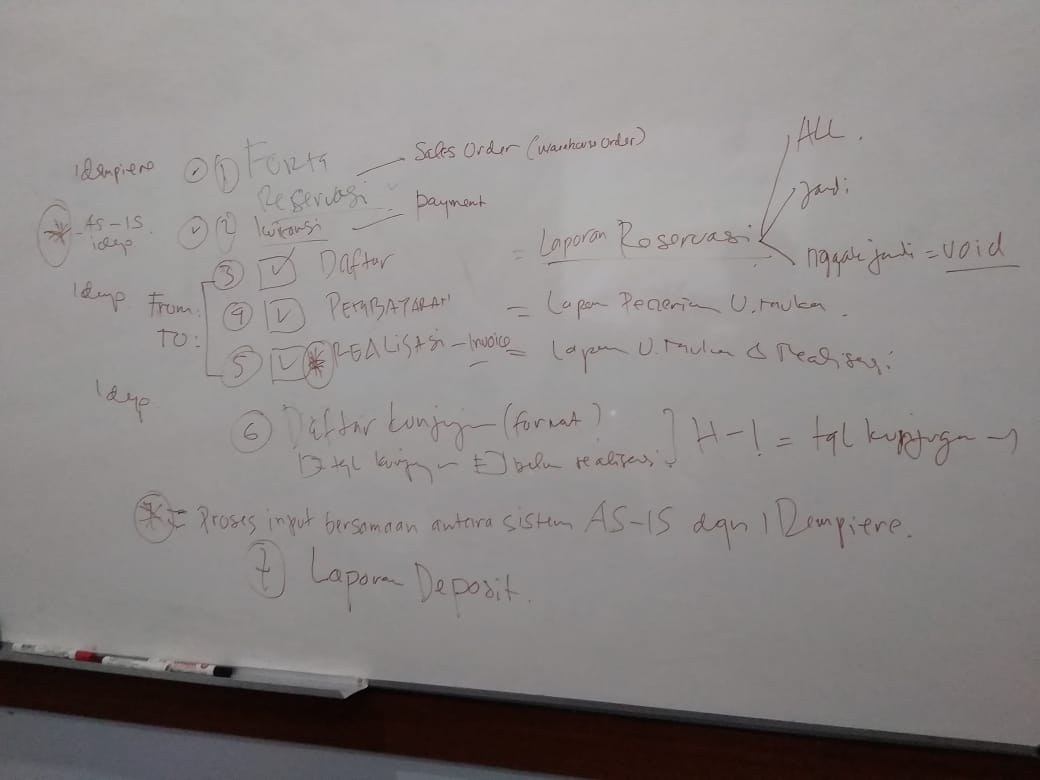 Idempiere ✓ ① Form Reservasi — Sales Order (Warehouse Order)
* - AS-IS idep. ✓ ② kwitansi — payment
③ ☑ Daftar = Laporan Reservasi < ALL. / jadi / nggak jadi = void
Idep From: ④ ☑ PEMBAYARAN = Lapon U. Muka.
TO: ⑤ ☑ * REALISASI - Invoice = Lapon U. Muka & Realisasi
Idep
⑥ Daftar kunjungan (format) ] H-1 = tgl kunjungan
tgl kunjungan belum realisasi
* = Proses input bersamaan antara sistem AS-IS dgn IDempiere.
⑦ Laporan Deposit.